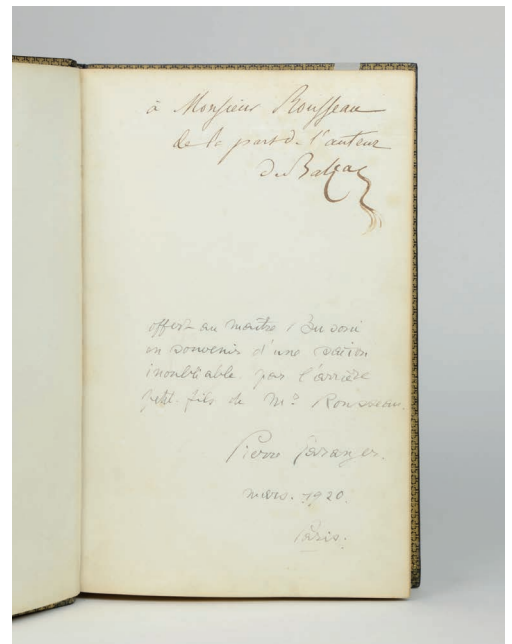 à Monsieur Rousseau
de la part de l'auteur
De Balzac
offert au maître Busoni
en souvenir d'une
inoubliable par l'arrière
petit-fils de Mr Rousseau.
Pierre
mars. 1920.
Paris.